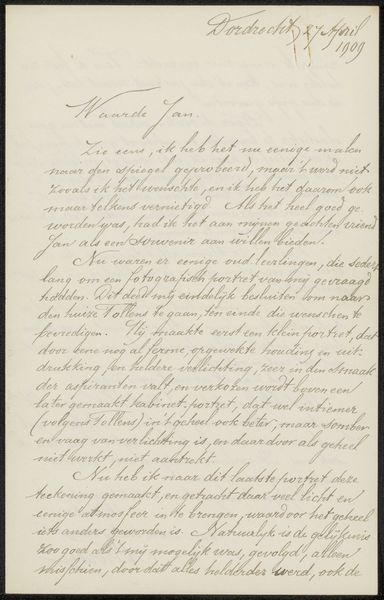 Dordrecht 27 April
1909
Waarde Jan.
Zie eens, ik heb het nu eenige malen
naar den spiegel geprobeerd, maar 't werd niet
zooals ik het wenschte, en ik heb het daarom ook
maar telkens vernietigd. Als het heel goed ge-
worden was, had ik het aan mijnen geachten vriend
Jan als een souvenir aan willen bieden!
Nu waren er eenige oud leerlingen, die sedert
lang om een fotografisch portret van mij gevraagd
hadden. Dit deed mij eindelijk besluiten om naar
den huize Tollens te gaan, ten einde die menschen te
bevredigen. Hij maakte eerst een klein portret, dat
door eene nog al ferme, opgewekte houding en uit-
drukking, en heldere verlichting, zeer in den smaak
der aspiranten valt, en verkozen wordt boven een
later gemaakt kabinetportret, dat wel intiemer
(volgens Tollens) in 't geheel ook beter, maar somber
en vaag van verlichting is, en daardoor als geheel
niet werkt, niet aantrekt.
Nu heb ik naar dit laatste portret deze
teekening gemaakt, en getracht daar veel licht en
eenige atmosfeer in te brengen, waardoor het geheel
iets anders geworden is. Natuurlijk is de gelijkenis
zoo goed als 't mij mogelijk was, gevolgd, alleen
misschien, door dat alles helderder werd, ook de